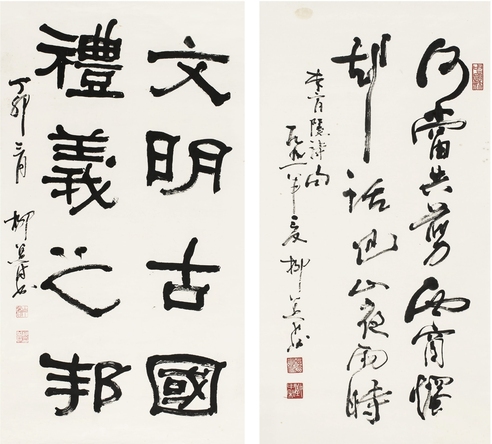 何當共剪西窗燭
却話巴山夜雨時
李商隱詩句
年夏 柳
文明古國
禮義之邦
丁卯三月 柳